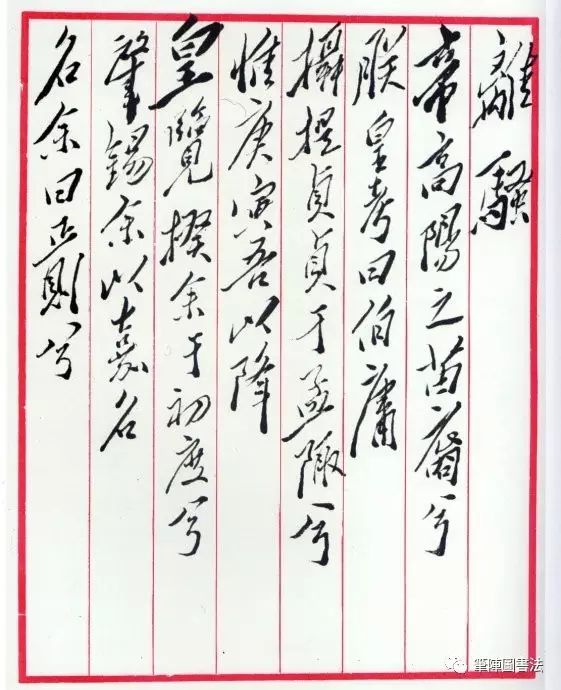 離騷
帝高陽之苗裔兮
朕皇考曰伯庸
攝提貞貞于孟陬兮
惟庚寅吾以降
皇覽揆余于初度兮
肇錫余以嘉名
名余曰正則兮
筆陣圖書法